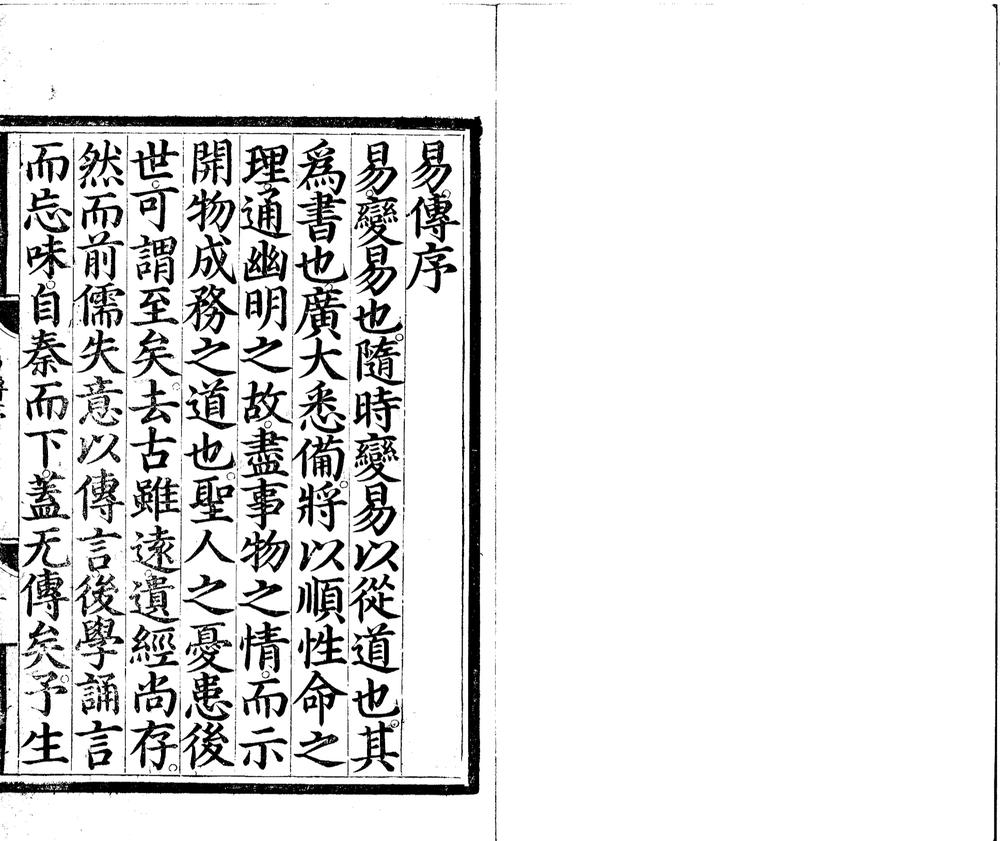 易傳序
易變易也隨時變易以從道也其
爲書也廣大悉備將以順性命之
理通幽明之故盡事物之情而示
開物成務之道也聖人之憂患後
世可謂至矣去古雖遠遺經尚存
然而前儒失意以傳言後學誦言
而忘味自秦而下蓋无傳矣予生